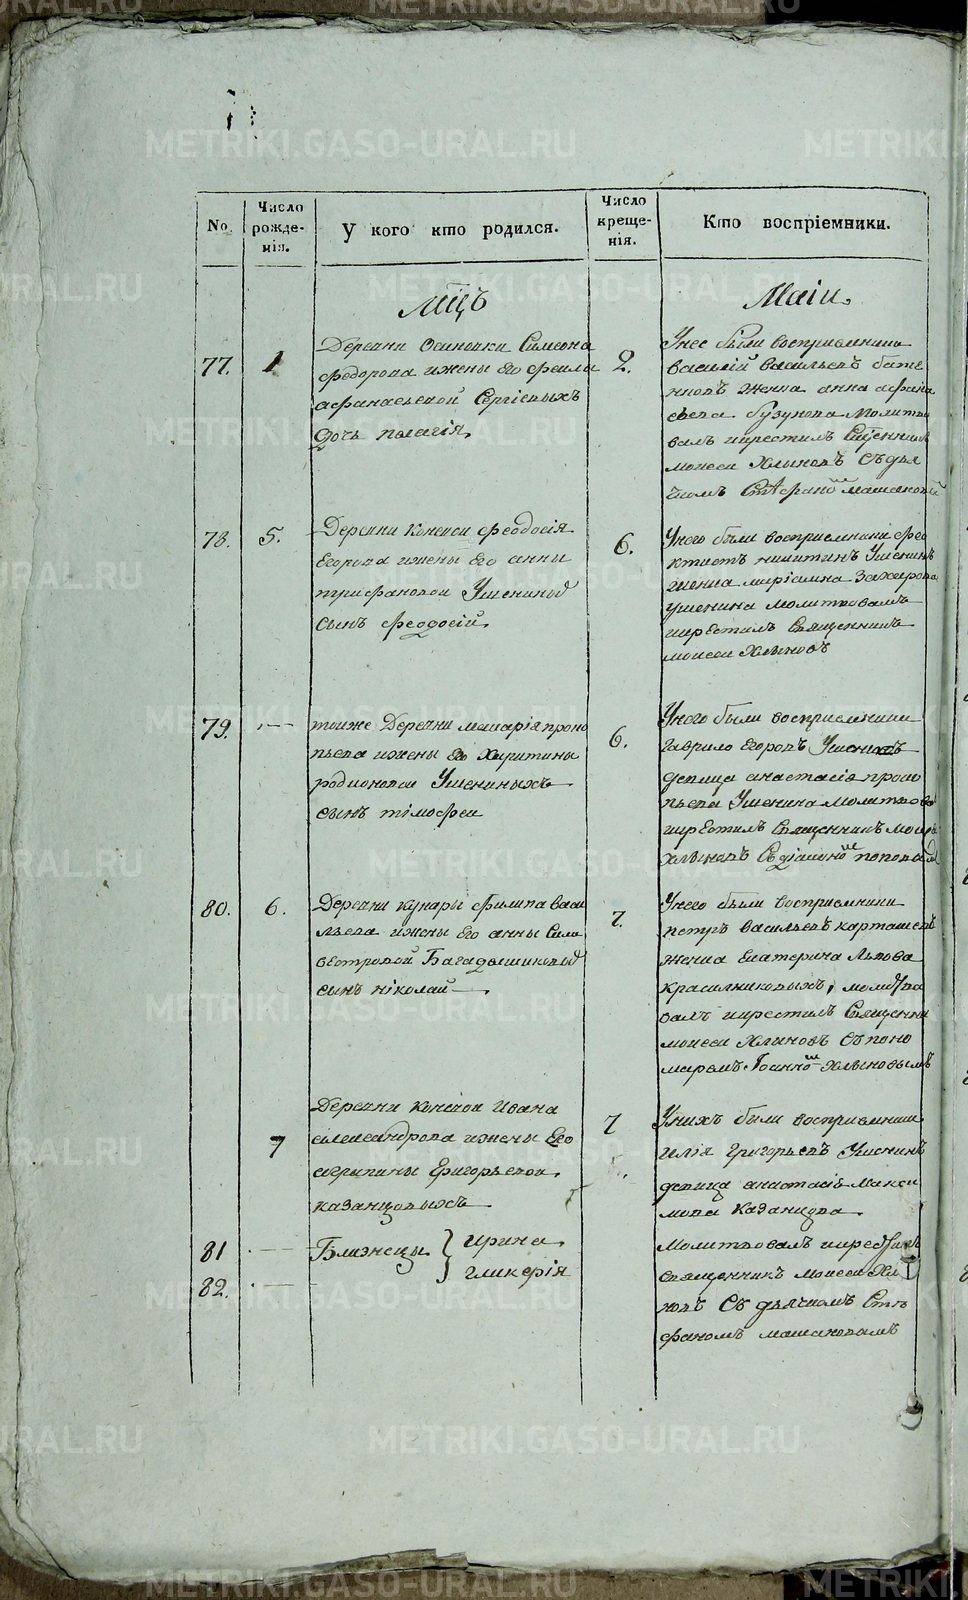 METRIKI.GASO-URAL.RU
No.
Число рожде-нія.
У кого кто родился.
Число креще-нія.
Кто воспріемники.
Мцъ
Маіи
77.
1
Деревни Осиновки Симеона
Федорова ижены Его феклы
афанасьевой Сергіевыхъ
дочь пелагія
2.
Унее были восприемники
василій васильевъ
женка анна афана
сьева бузунова молитво
валъ икрестилъ Сщенникъ
моисеи Хлыновъ Съдья
78.
5.
Деревни Конева феодосія
Егорова ижены Его анны
трифановой Ушениныхъ
сынъ феодосій
6.
Унего были восприемники фео
ктистъ никитинъ Ушенинъ
женка маріамна Захарова
ушенина молитвовалъ
икрестилъ Священникъ
моисеи Хлыновъ
79.
тоиже Деревни макарія проко
пьева ижены Его Харитины
родионовой Ушениныхъ
сынъ тімофеи
6.
Унего были восприемники
гаврило Егоровъ Ушенинъ
девица анастасіа проко
пьева Ушенина молитвова
икрестилъ Священникъ моисеи
Хлыновъ
80.
6.
Деревни кунары филипа васи
льева ижены Его анны Сили
вестровой
сынъ ніколай
7.
Унего были восприемники
петръ васильевъ карташевъ
женка Екатерина Львова
красилниковыхъ, молитво
валъ икрестилъ Священни
моисеи Хлыновъ съпоно
маремъ Іоанно Хлыновымъ
7
Деревни Коневой Ивана
александрова ижены Его
агрипины Григорьевои
казанцовыхъ
7
Унихъ были восприемники
илія григорьевъ Ушенинъ
девица анастасіа Макси
мова Казанцова
81
82.
Близнецы
ирина
гликерія
Молитвовалъ икрестилъ
священникъ моисеи Хлы
новъ Съ дьячкомъ Сте
фаномъ